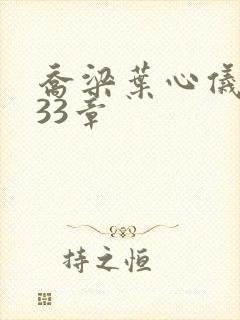 乔梁葉心儀
33章
持之恒